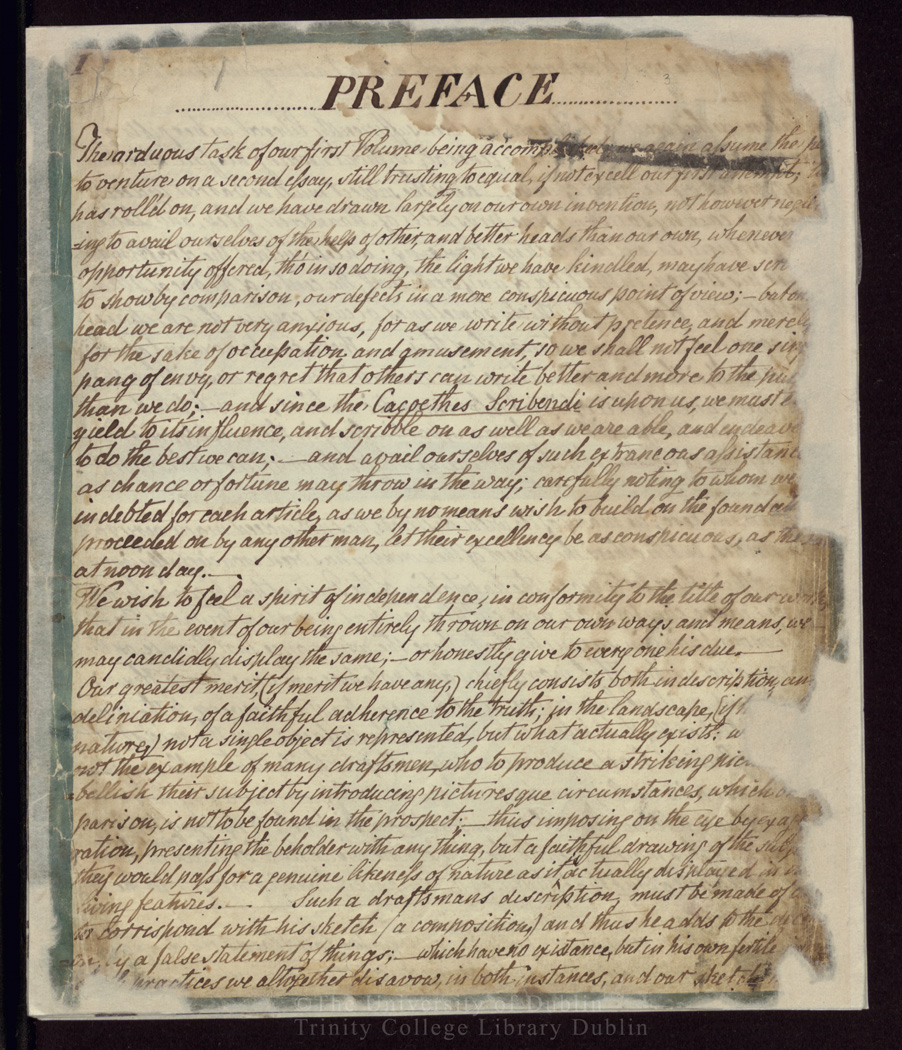 1
PREFACE
3
The arduous task of our first Volume being accomp again assume the
to venture on a second essay, still trusting to equal, if not excell our first attempt;
has roll'd on, and we have drawn largely on our own invention, not however
ing to avail ourselves of the help of other, and better heads than our own, whenever
opportunity offered, tho' in so doing, the light we have kindled, may have
to show by comparison, our defects in a more conspicuous point of view; – but on
head we are not very anxious, for as we write without pretence, and merely
for the sake of occupation, and amusement, so we shall not feel one
pang of envy, or regret that others can write better and more to the
than we do; – and since the Cacoethes Scribendi is upon us, we must
yield to its influence, and scribble on as well as we are able, and
to do the best we can; – and avail ourselves of such extraneous assistance
as chance or fortune may throw in the way; carefully noting to whom we
indebted for each article, as we by no means wish to build on the
proceeded on by any other man, let their excellency be as conspicuous, as the
at noon day. –
We wish to feel a spirit of independence, in conformity to the title of our
that in the event of our being entirely thrown on our own ways and means, we
may candidly display the same; – or honestly give to every one his due. –
Our greatest merit (if merit we have any,) chiefly consists, both in description, and
deliniation, of a faithful adherence to the truth; in the landscape, (if
nature,) not a single object is represented, but what actually exists;
not the example of many draftsmen, who to produce a striking
bellish their subject by introducing picturesque circumstances, which
parison, is not to be found in the prospect; – thus imposing on the eye by
ration, presenting the beholder with any thing, but a faithful drawing of the
they would pass for a genuine likeness of nature as it actually displayed in
living features. – Such a draftsmans description, must be made of
to corrispond with his sketch (a composition,) and thus he adds to the
by a false statement of things; – which have no existance, but in his own fertile
practices we altogether disavow, in both instances, and our
©The University of Dublin
Trinity College Library Dublin